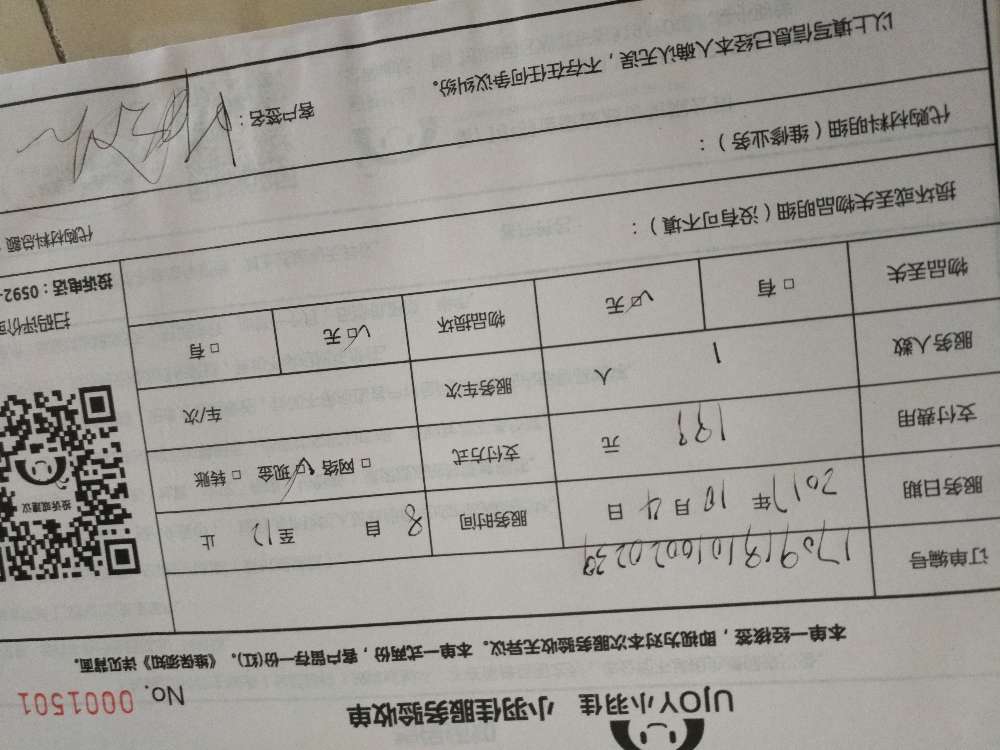 UJOY小羽佳 小羽佳服务验收单
No. 0001501
本单一经核签，即视为对本次服务验收无异议。本单一式两份，客户留存一份(红)。《维保须知》详见背面。
订单编号
服务日期 2017年 10月 4日 服务时间 8 自 至12 止
支付费用 199 元 支付方式 □网络 ☑现金 □转账
服务人数 1 人 服务车次 车/次
物品丢失 □有 ☑无 物品损坏 ☑无 □有
投诉或建议
扫码评价或
投诉电话：0592-
损坏或丢失物品明细（没有可不填）：
代购材料明细（维修业务）： 代购材料总额：
以上填写信息已经本人确认无误，不存在任何争议纠纷。
客户签名：